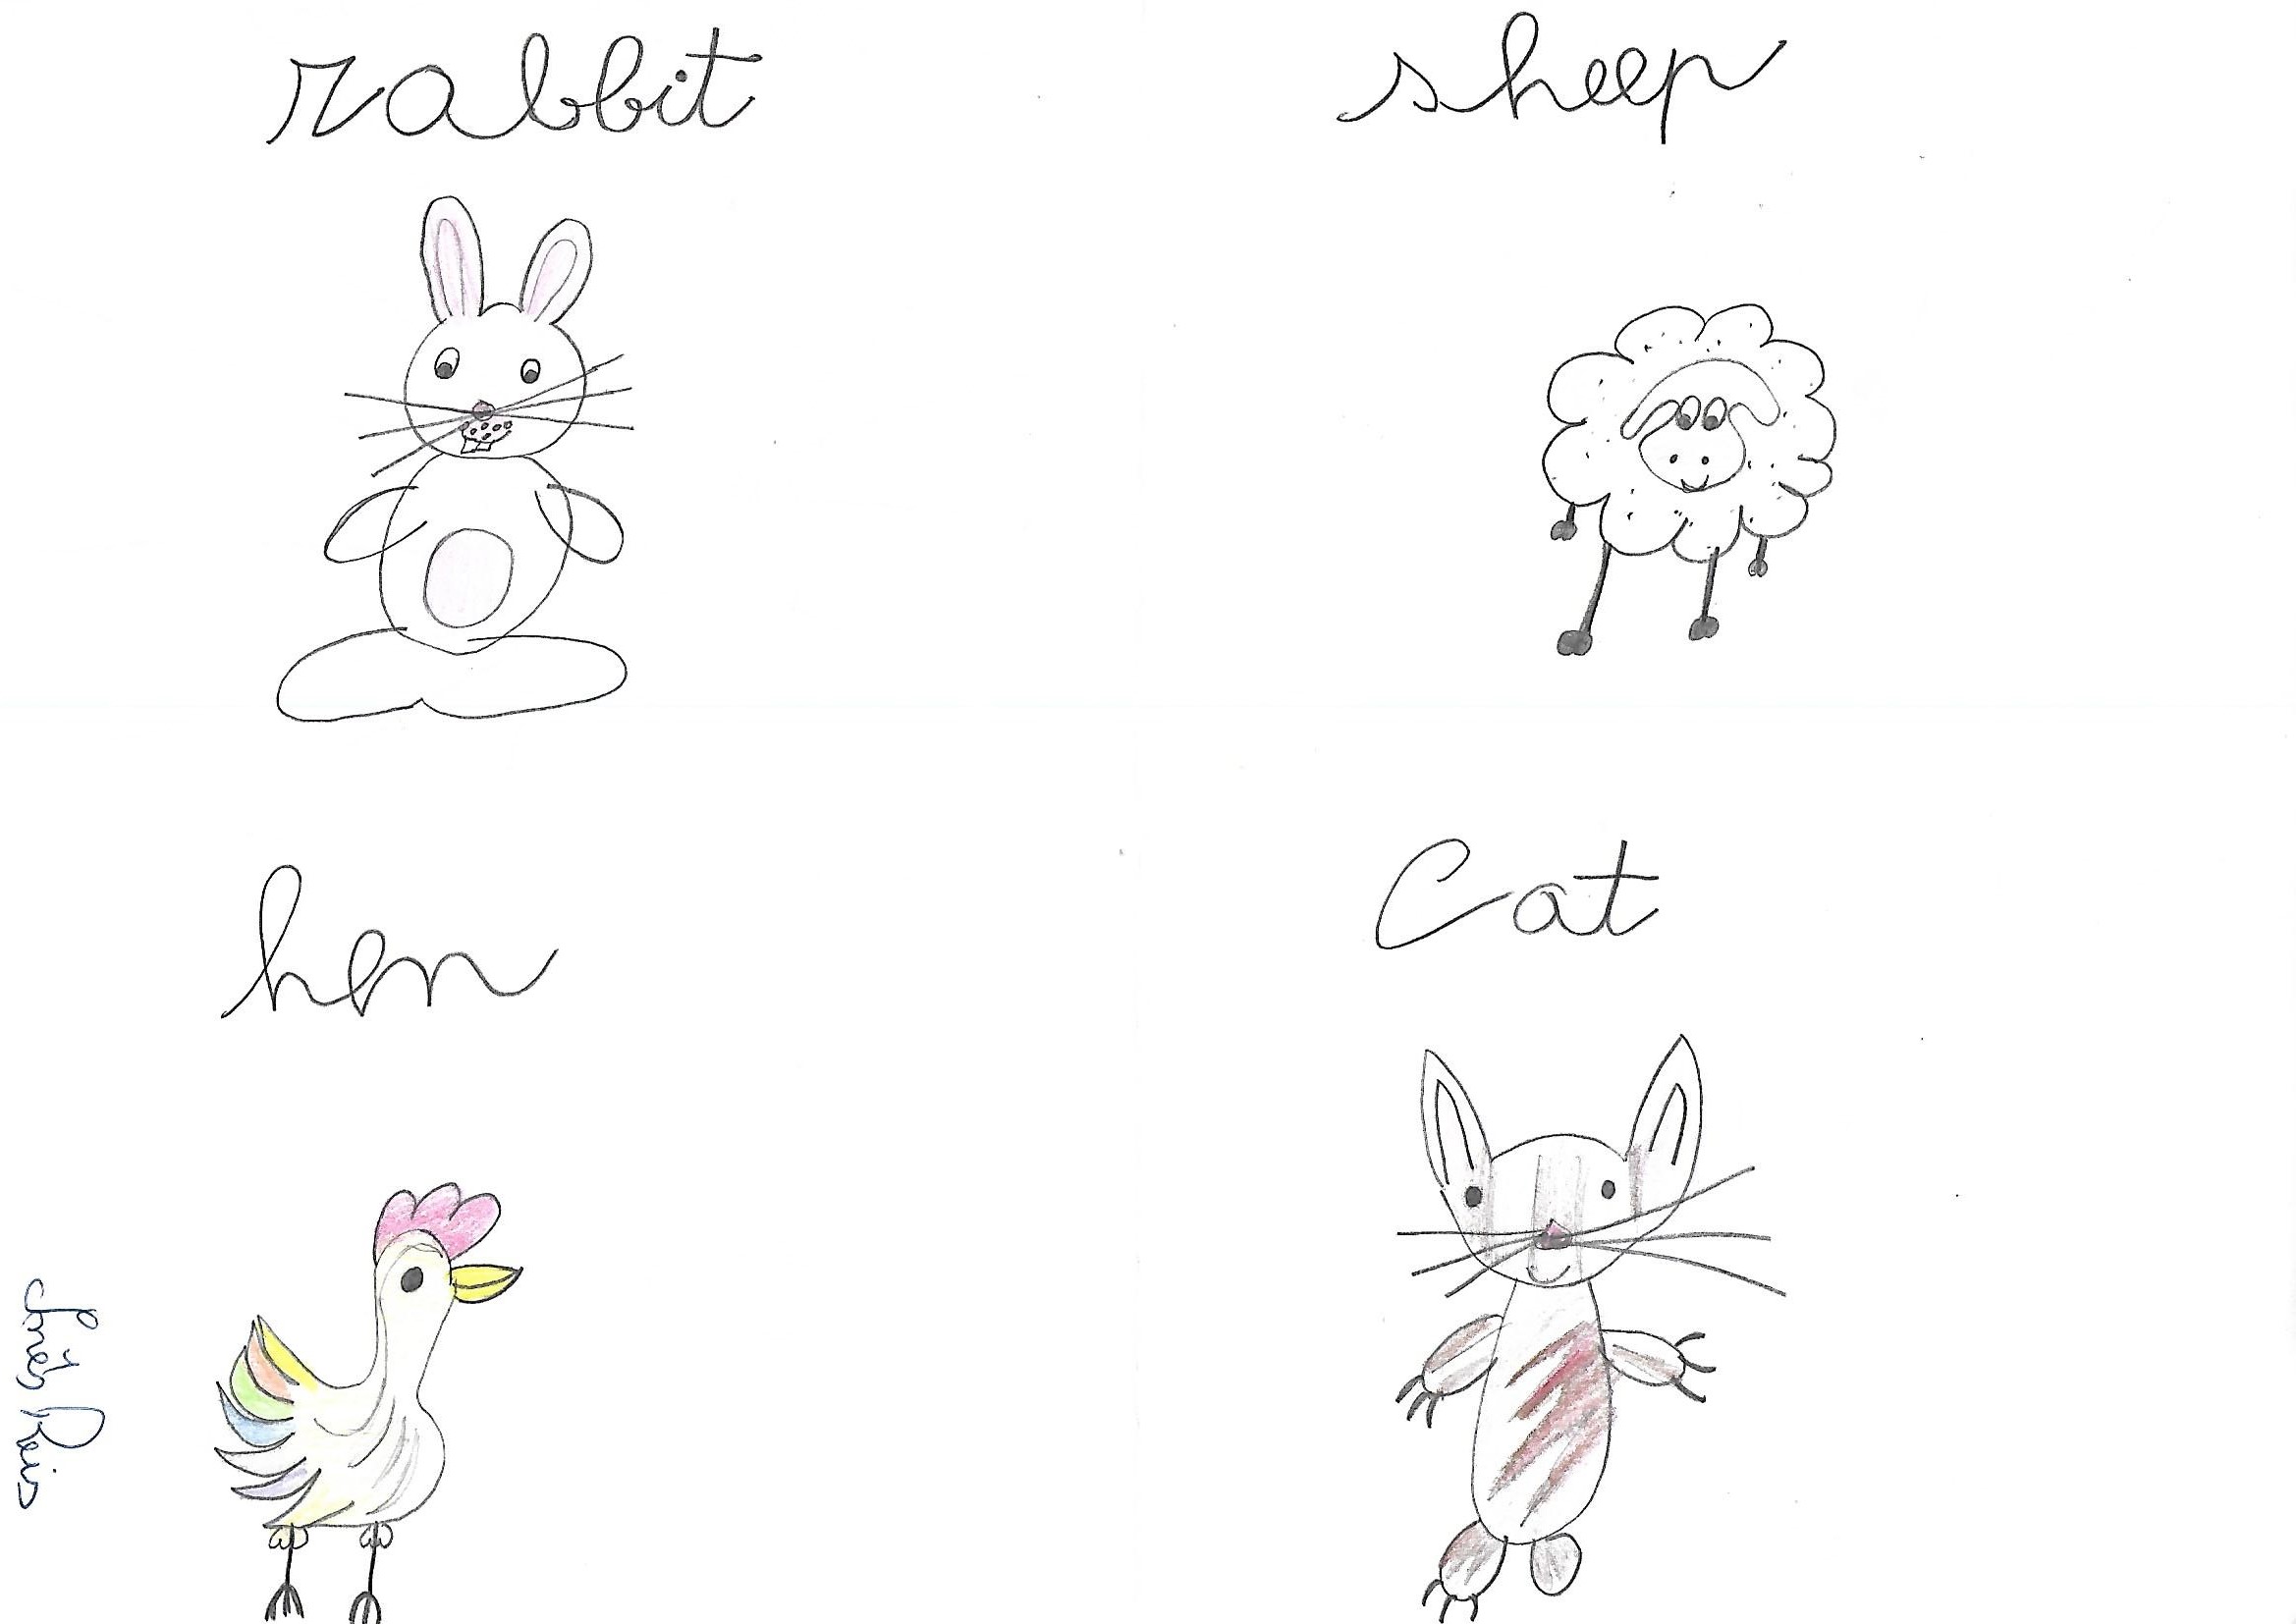 rabbit
sheep
hen
cat
Inês Reis